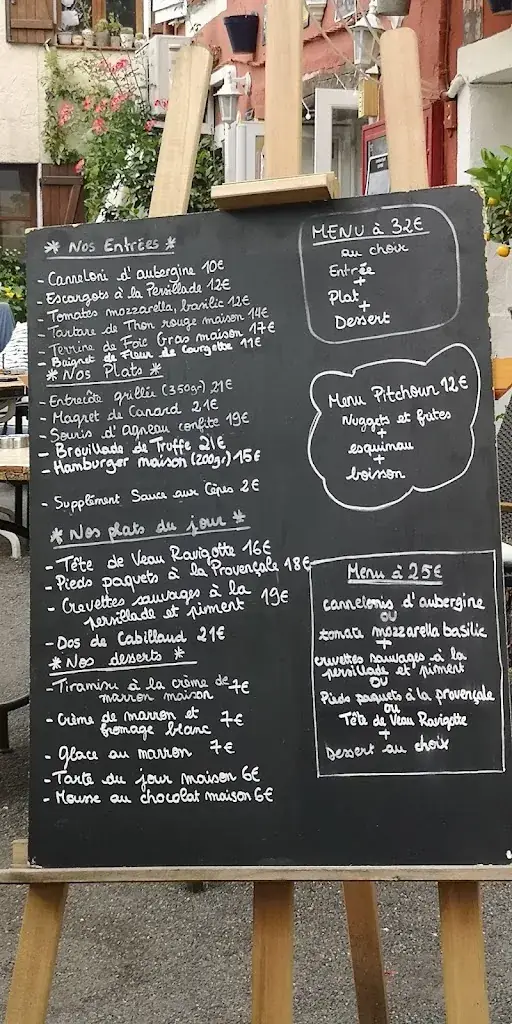 * Nos Entrées *
- Canneloni d'aubergine 10€
- Escargots à la Persillade 12€
- Tomates mozzarella, basilic 12€
- Tartare de Thon rouge maison 14€
- Terrine de Foie Gras maison 17€
- Beignet de Fleur de Courgette 11€
* Nos Plats *
- Entrecôte grillée (350gr) 21€
- Magret de Canard 21€
- Souris d'agneau confite 19€
- Brouillade de Truffe 21€
- Hamburger maison (200gr) 15€
- Supplément Sauce aux Cèpes 2€
* Nos plats du jour *
- Tête de Veau Ravigotte 16€
- Pieds paquets à la Provençale 18€
- Crevettes sauvages à la
persillade et piment 19€
- Dos de Cabillaud 21€
* Nos desserts *
- Tiramisu à la crème de
marron maison 7€
- Crème de marron et
fromage blanc 7€
- Glace au marron 7€
- Tarte du jour maison 6€
- Mousse au chocolat maison 6€
MENU à 32€
au choix
Entrée
+
Plat
+
Dessert
Menu Pitchoun 12€
Nuggets et frites
+
esquimau
+
boisson
Menu à 25€
cannelonis d'aubergine
ou
tomate mozzarella basilic
+
crevettes sauvages à la
persillade et piment
ou
Pieds paquets à la provençale
ou
Tête de Veau Ravigotte
+
Dessert au choix